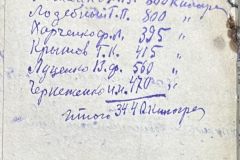 800 килогр
Лозебный Т.П. 800 "
Харченко Ф.Л. 395 "
Крытов Т.К. 415 "
Луценко В.Ф. 560 "
Чернетенко И.М. 470 "
Итого 3440 килогр